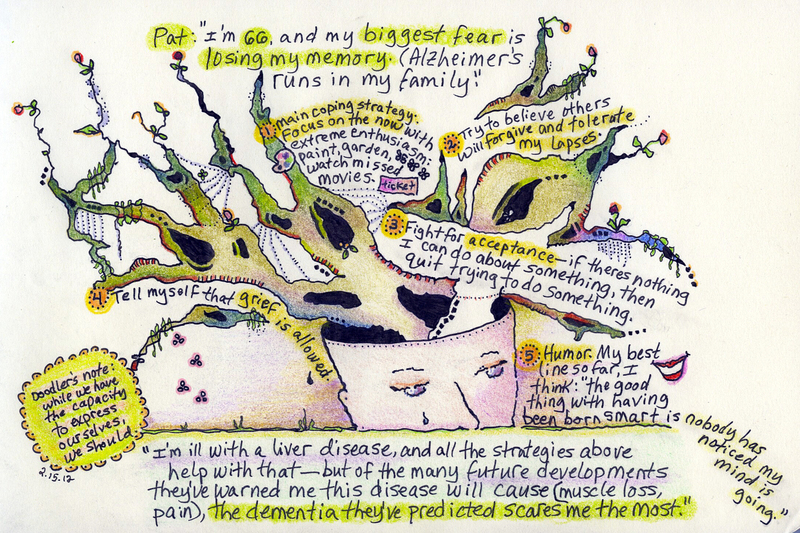 Pat: "I'm 66, and my biggest fear is
losing my memory. (Alzheimer's
runs in my family."
1 main coping strategy:
Focus on the now with
extreme enthusiasm:
paint, garden,
watch missed
movies. ticket
2 Try to believe others
will forgive and tolerate
my lapses.
3 Fight for acceptance—if theres nothing
I can do about something, then
quit trying to do something.
4 Tell myself that grief is allowed
5 Humor. My best
line so far, I
think: "the good
thing with having
been born smart is nobody has
noticed my
mind is
going."
Doodler's note:
while we have
the capacity
to express
ourselves,
we should.
2.15.12
"I'm ill with a liver disease, and all the strategies above
help with that—but of the many future developments
they've warned me this disease will cause (muscle loss,
pain), the dementia they've predicted scares me the most."